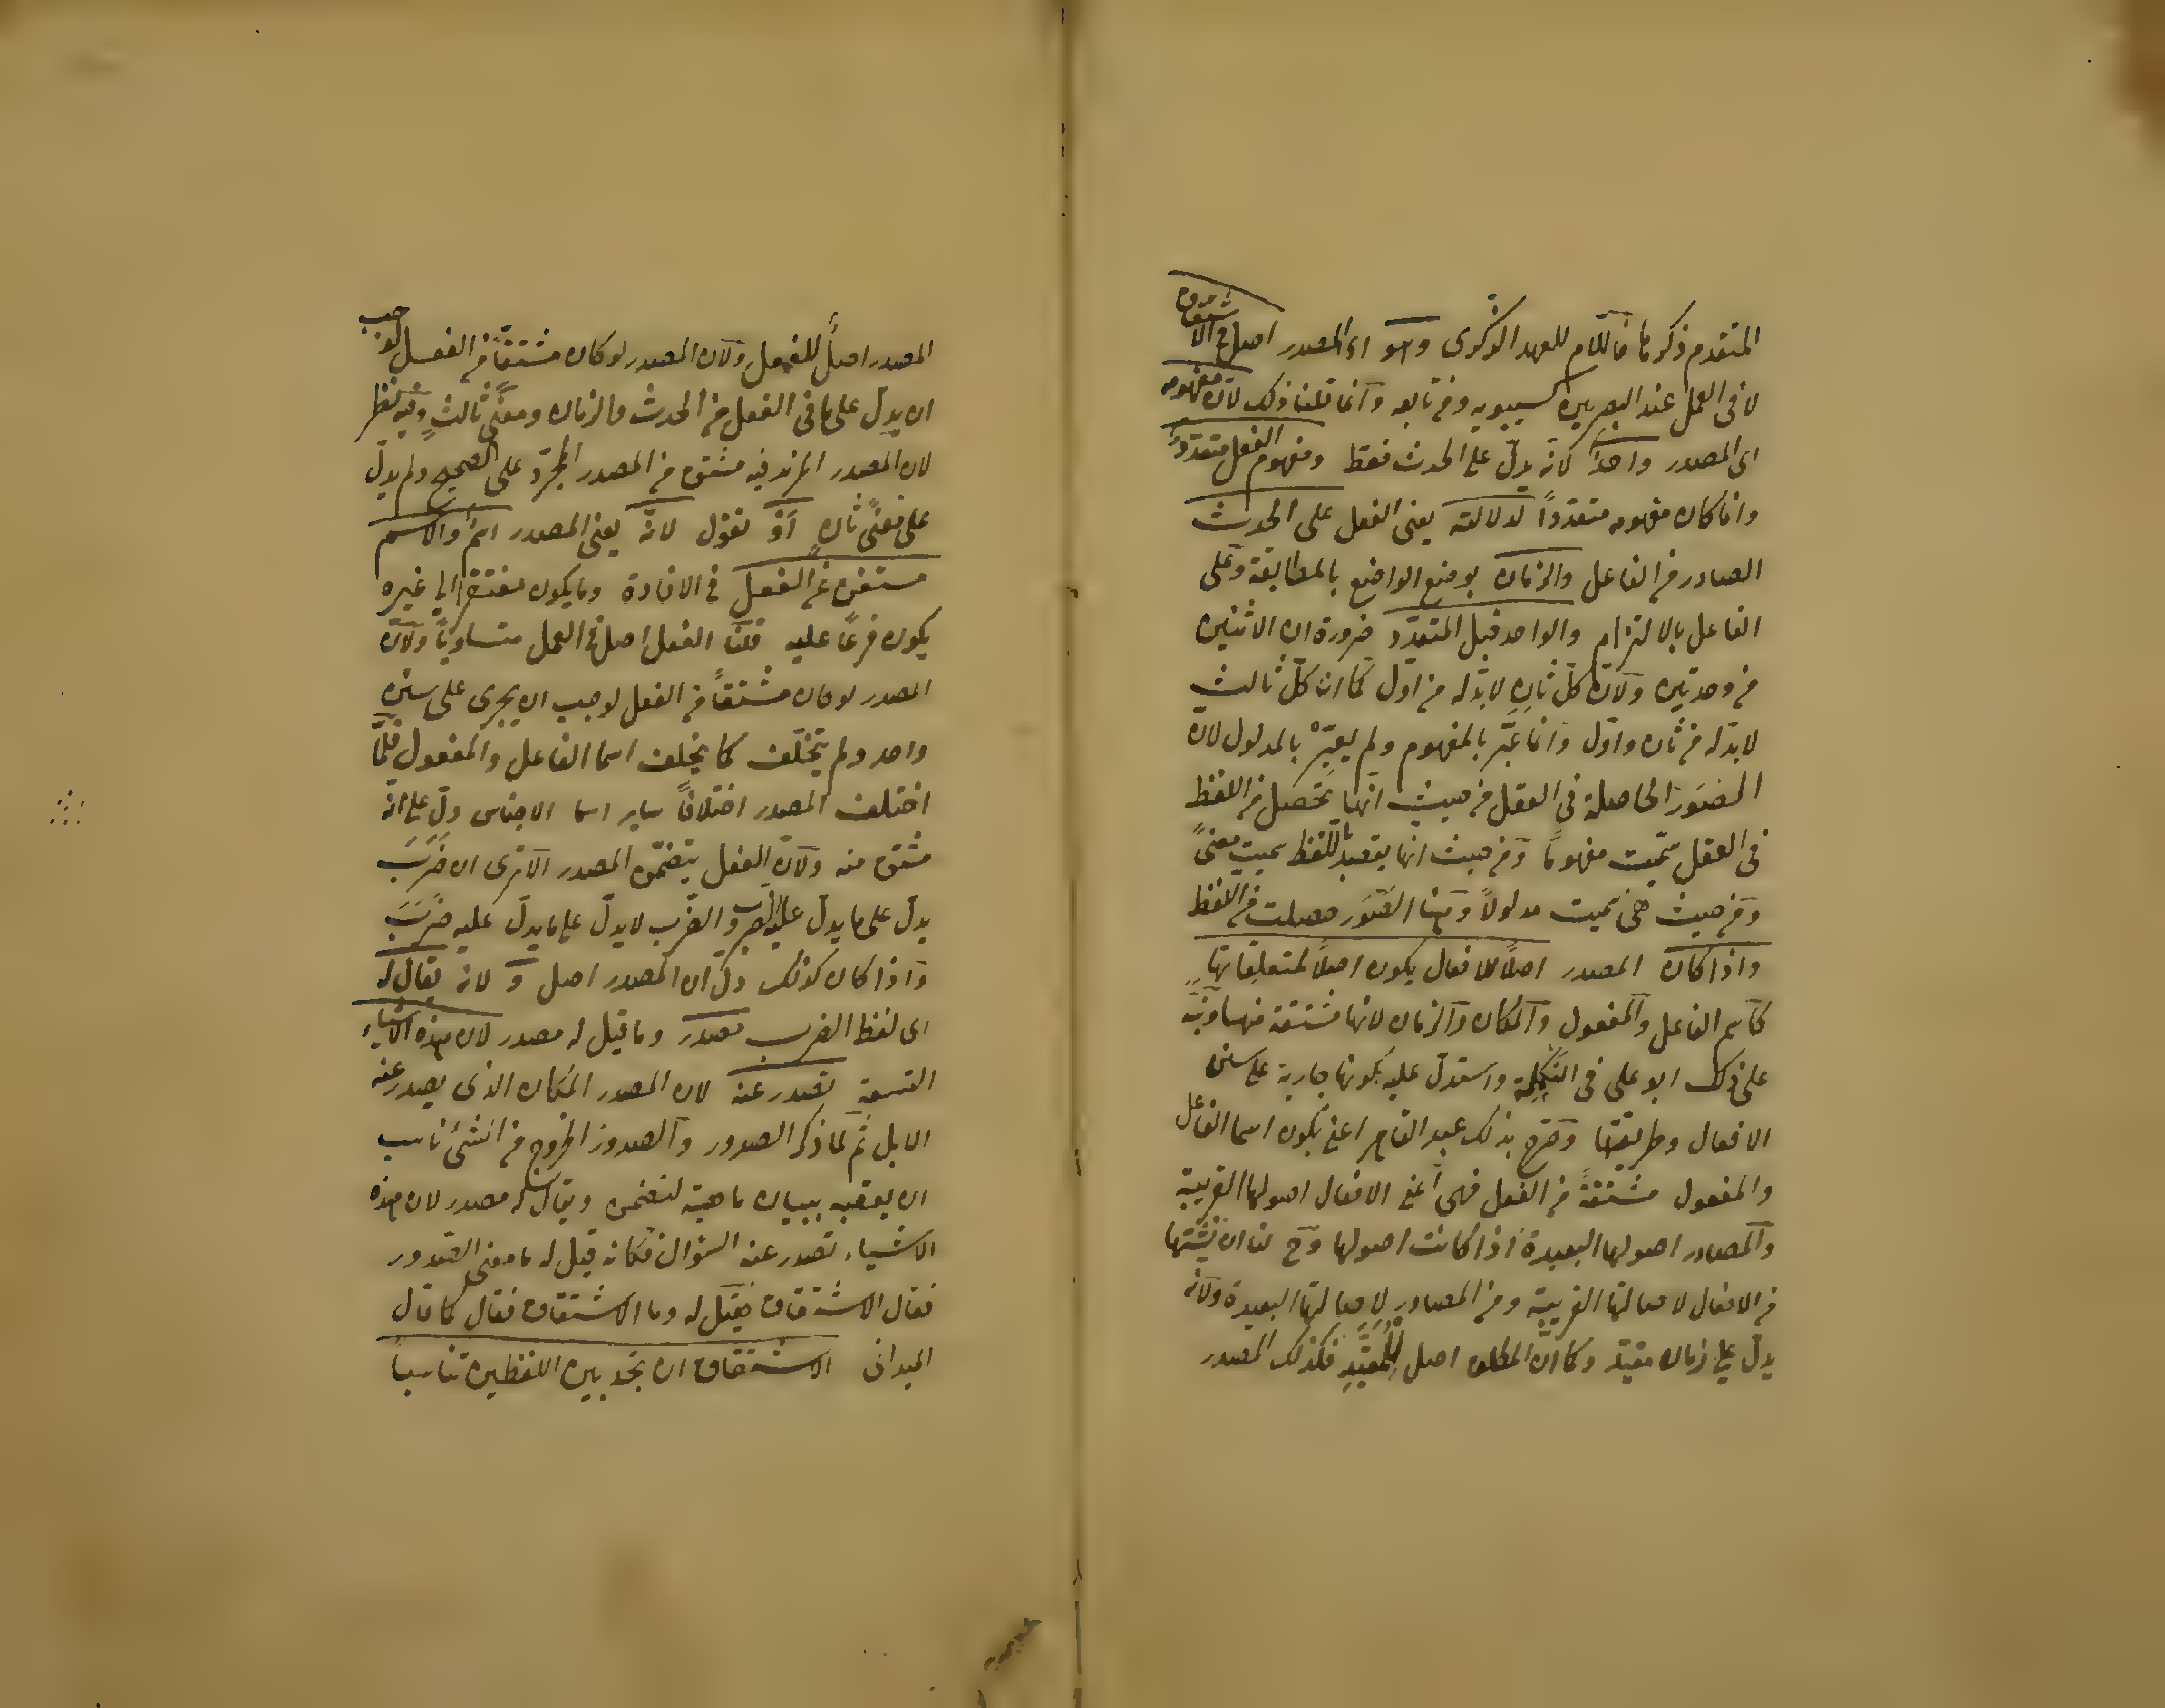 المتقدم ذكرها فاللام للعهد الذكرى وهو اى المصدر اصل فى الاشتقاق
لا فى العمل عند البصريين كسيبويه ومن تابعه وانما قلنا ذلك لان مفهومه
اى المصدر واحد لانه يدل على الحدث فقط ومفهوم الفعل متعدد
وانما كان مفهومه متعددًا لدلالته يعنى الفعل على الحدث
الصادر من الفاعل والزمان بوضع الواضع بالمطابقة وعلى
الفاعل بالالتزام والواحد قبل المتعدد ضرورة ان الاثنين
من وحدتين ولان كل ثان لابد له من اول كما ان كل ثالث
لابد له من ثان واول وانما عبّر بالمفهوم ولم يعبّرْ بالمدلول لان
الصُوَر الحاصلة فى العقل من حيث انها تحصل من اللفظ
فى العقل سمّيت مفهومًا ومن حيث انها يقصد باللفظ سميت معنىً
ومن حيث هى سميت مدلولاً وهنا الصُوَر حصلت من اللفظ
واذا كان المصدر اصلًا للافعال يكون اصلًا لمتعلِقاتِها
كاسم الفاعل والمفعول والمكان والزمان لانها مشتقة منها ونبّه
على ذلك ابو على فى التكملة واستدل عليه بكونها جارية على سنن
الافعال وطريقتها وصرّح بذلك عبد القاهر اعنى بكون اسما الفاعل
والمفعول مشتقةً من الفعل فهى اعنى الافعال اصولها القريبة
والمصادر اصولها البعيدة اذا كانت اصولها وح لنا ان نشتقها
من الافعال لاصالتها القريبة ومن المصادر لاصالتها البعيدة ولانه
يدل على زمان مقيد وكما ان المطلق اصل للمقيّدِ فكذلك المصدر
المصدر اصلٌ للفعلِ ولان المصدر لو كان مشتقًا من الفعل لوجب
ان يدل على ما فى الفعل من الحدث والزمان ومعنًى ثالثٍ وفيه نظر
لان المصدر المزيد فيه مشتق من المصدر المجرّد على الصحيح ولم يدلّ
على معنًى ثانٍ اَوْ نقول لانّه يعنى المصدر اسمٌ والاسم
مستغنٍ عن الفعل فى الافادة وما يكون مفتقرًا الى غيره
يكون فرعًا عليه قلنا الفعل اصل فى العمل متساويًا ولان
المصدر لو كان مشتقاً من الفعل لوجب ان يجرى على سنن
واحد ولم يتخلّف كما يخلف اسما الفاعل والمفعول فلمّا
اختلف المصدر اختلافَ ساير اسما الاجناس دلّ على انّه
مشتق منه ولان الفعل يتضمّن المصدر الا ترى ان ضَرَبَ
يدل على ما يدل عليه الضرب والضّرب لا يدلّ على ما يدلّ عليه ضَرَبَ
واذا كان كذلك دلّ ان المصدر اصل و لانه يقال له
اى لفظ الضرب مصدر وما قيل له مصدر لان هذه الاشياء
التسعة تصدر عنه لان المصدر المكان الذى يصدر عنه
الابل ثم لما ذكر الصدور والصدور الخروج من الشئ ناسب
ان يعقبه ببيان ماهية لتضمن ويقال له مصدر لان هذه
الاشياء تصدر عنه السؤال فكانه قيل له ما معنى الصّدور
فقال الاشتقاق فقيل له وما الاشتقاق فقال كما قال
الميدانى الاشتقاق ان تجد بين اللفظين تناسباً